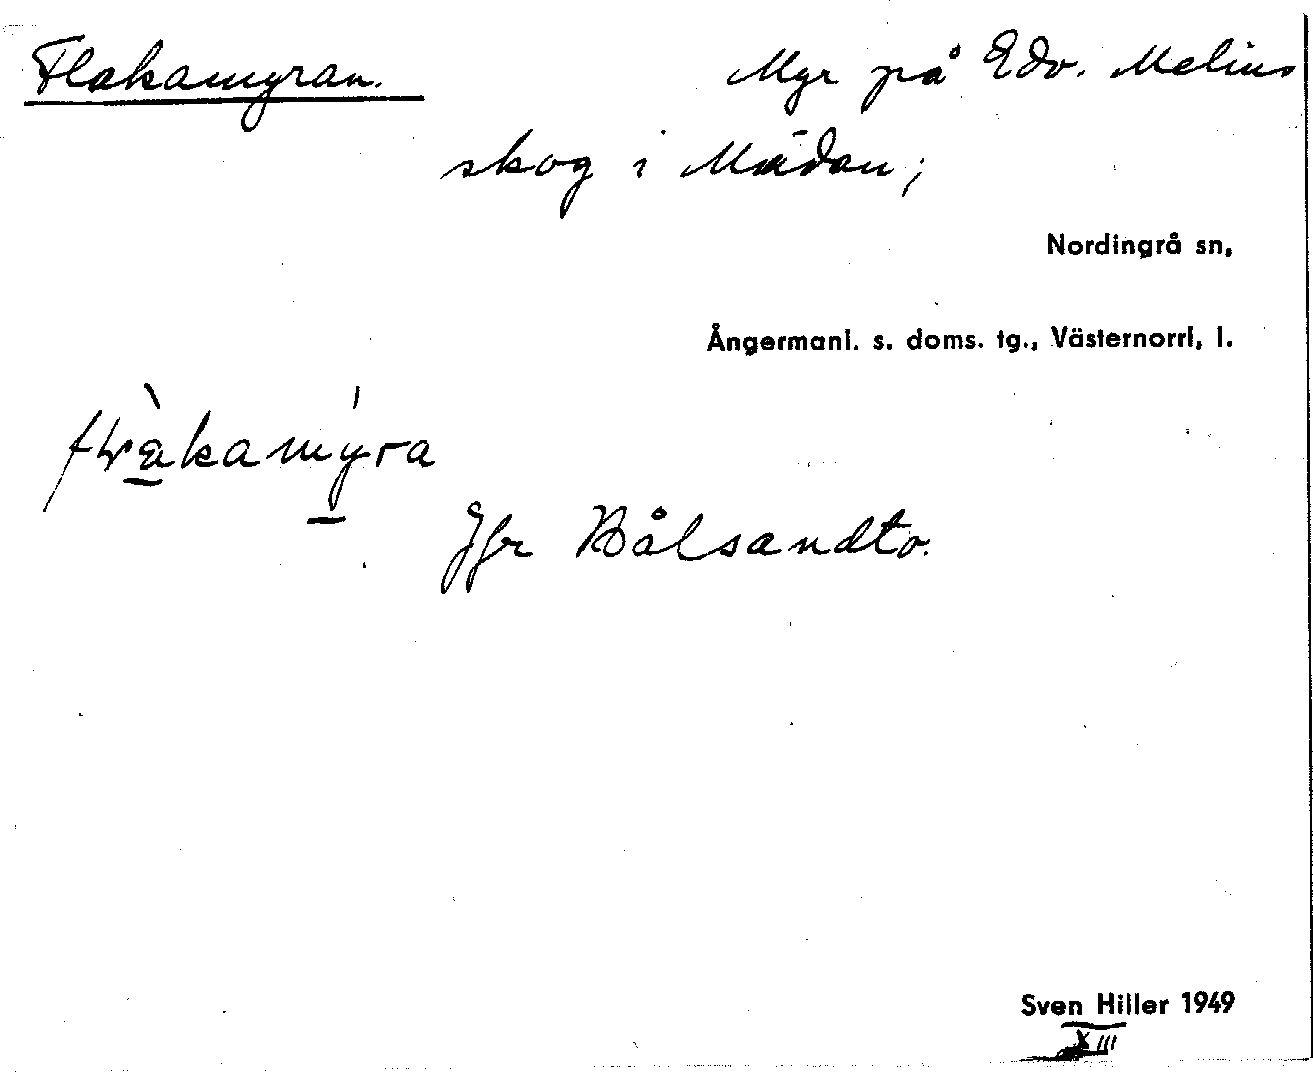 Flakamyran. Myr på Edv. Melins
skog i Mädan;
Nordingrå sn,
Ångermanl. s. doms. tg., Västernorrl, l.
Jfr Bålsandto.
Sven Hiller 1949
XIII